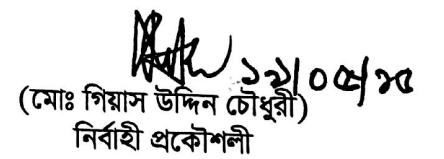 ১৯/০৫/২৫
(মোঃ গিয়াস উদ্দিন চৌধুরী)
নির্বাহী প্রকৌশলী